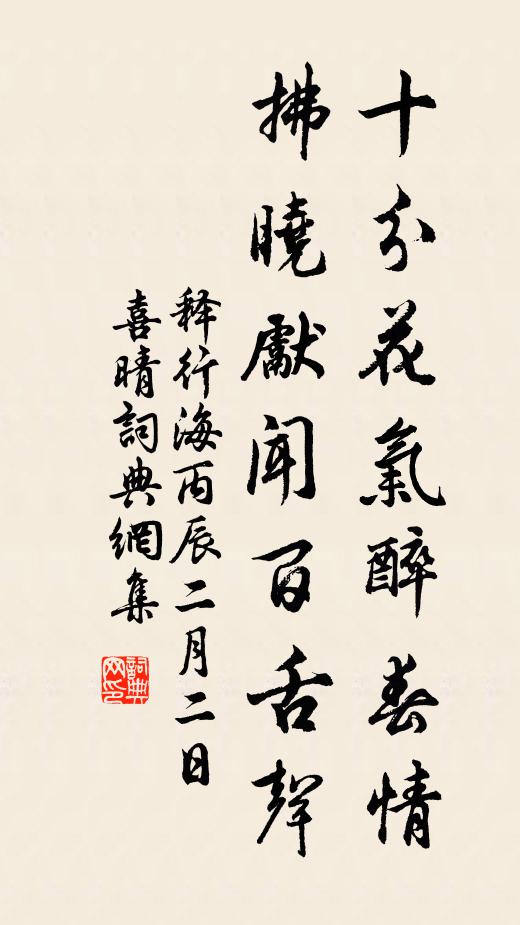 十分花氣醉春情
拂曉獻聞百舌聲
释行海丙辰二月二日
喜晴詞典網集
詞典
网印